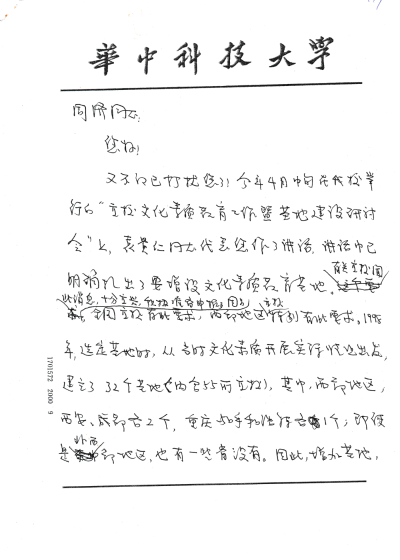 華中科技大学
周济同志:
您好!
又不得已打扰您了!今年4月中旬在我校举
行的“高校文化素质教育工作暨基地建设研讨
会”上,袁贵仁同志代表您作了讲话,讲话中已
明确指出了要增设文化素质教育基地。有关高校闻
此消息,十分高兴,
全国高校有此要求,西部地区特别有此要求。1998
年,选定基地时,从当时文化素质开展实际情况出发,
建立了32个基地(内含55所高校),其中,西部地区,
西安、成都各2个,重庆 和 各1个;即使
是 部地区,也有一些省没有。因此,增加基地,
1701572 2000 9